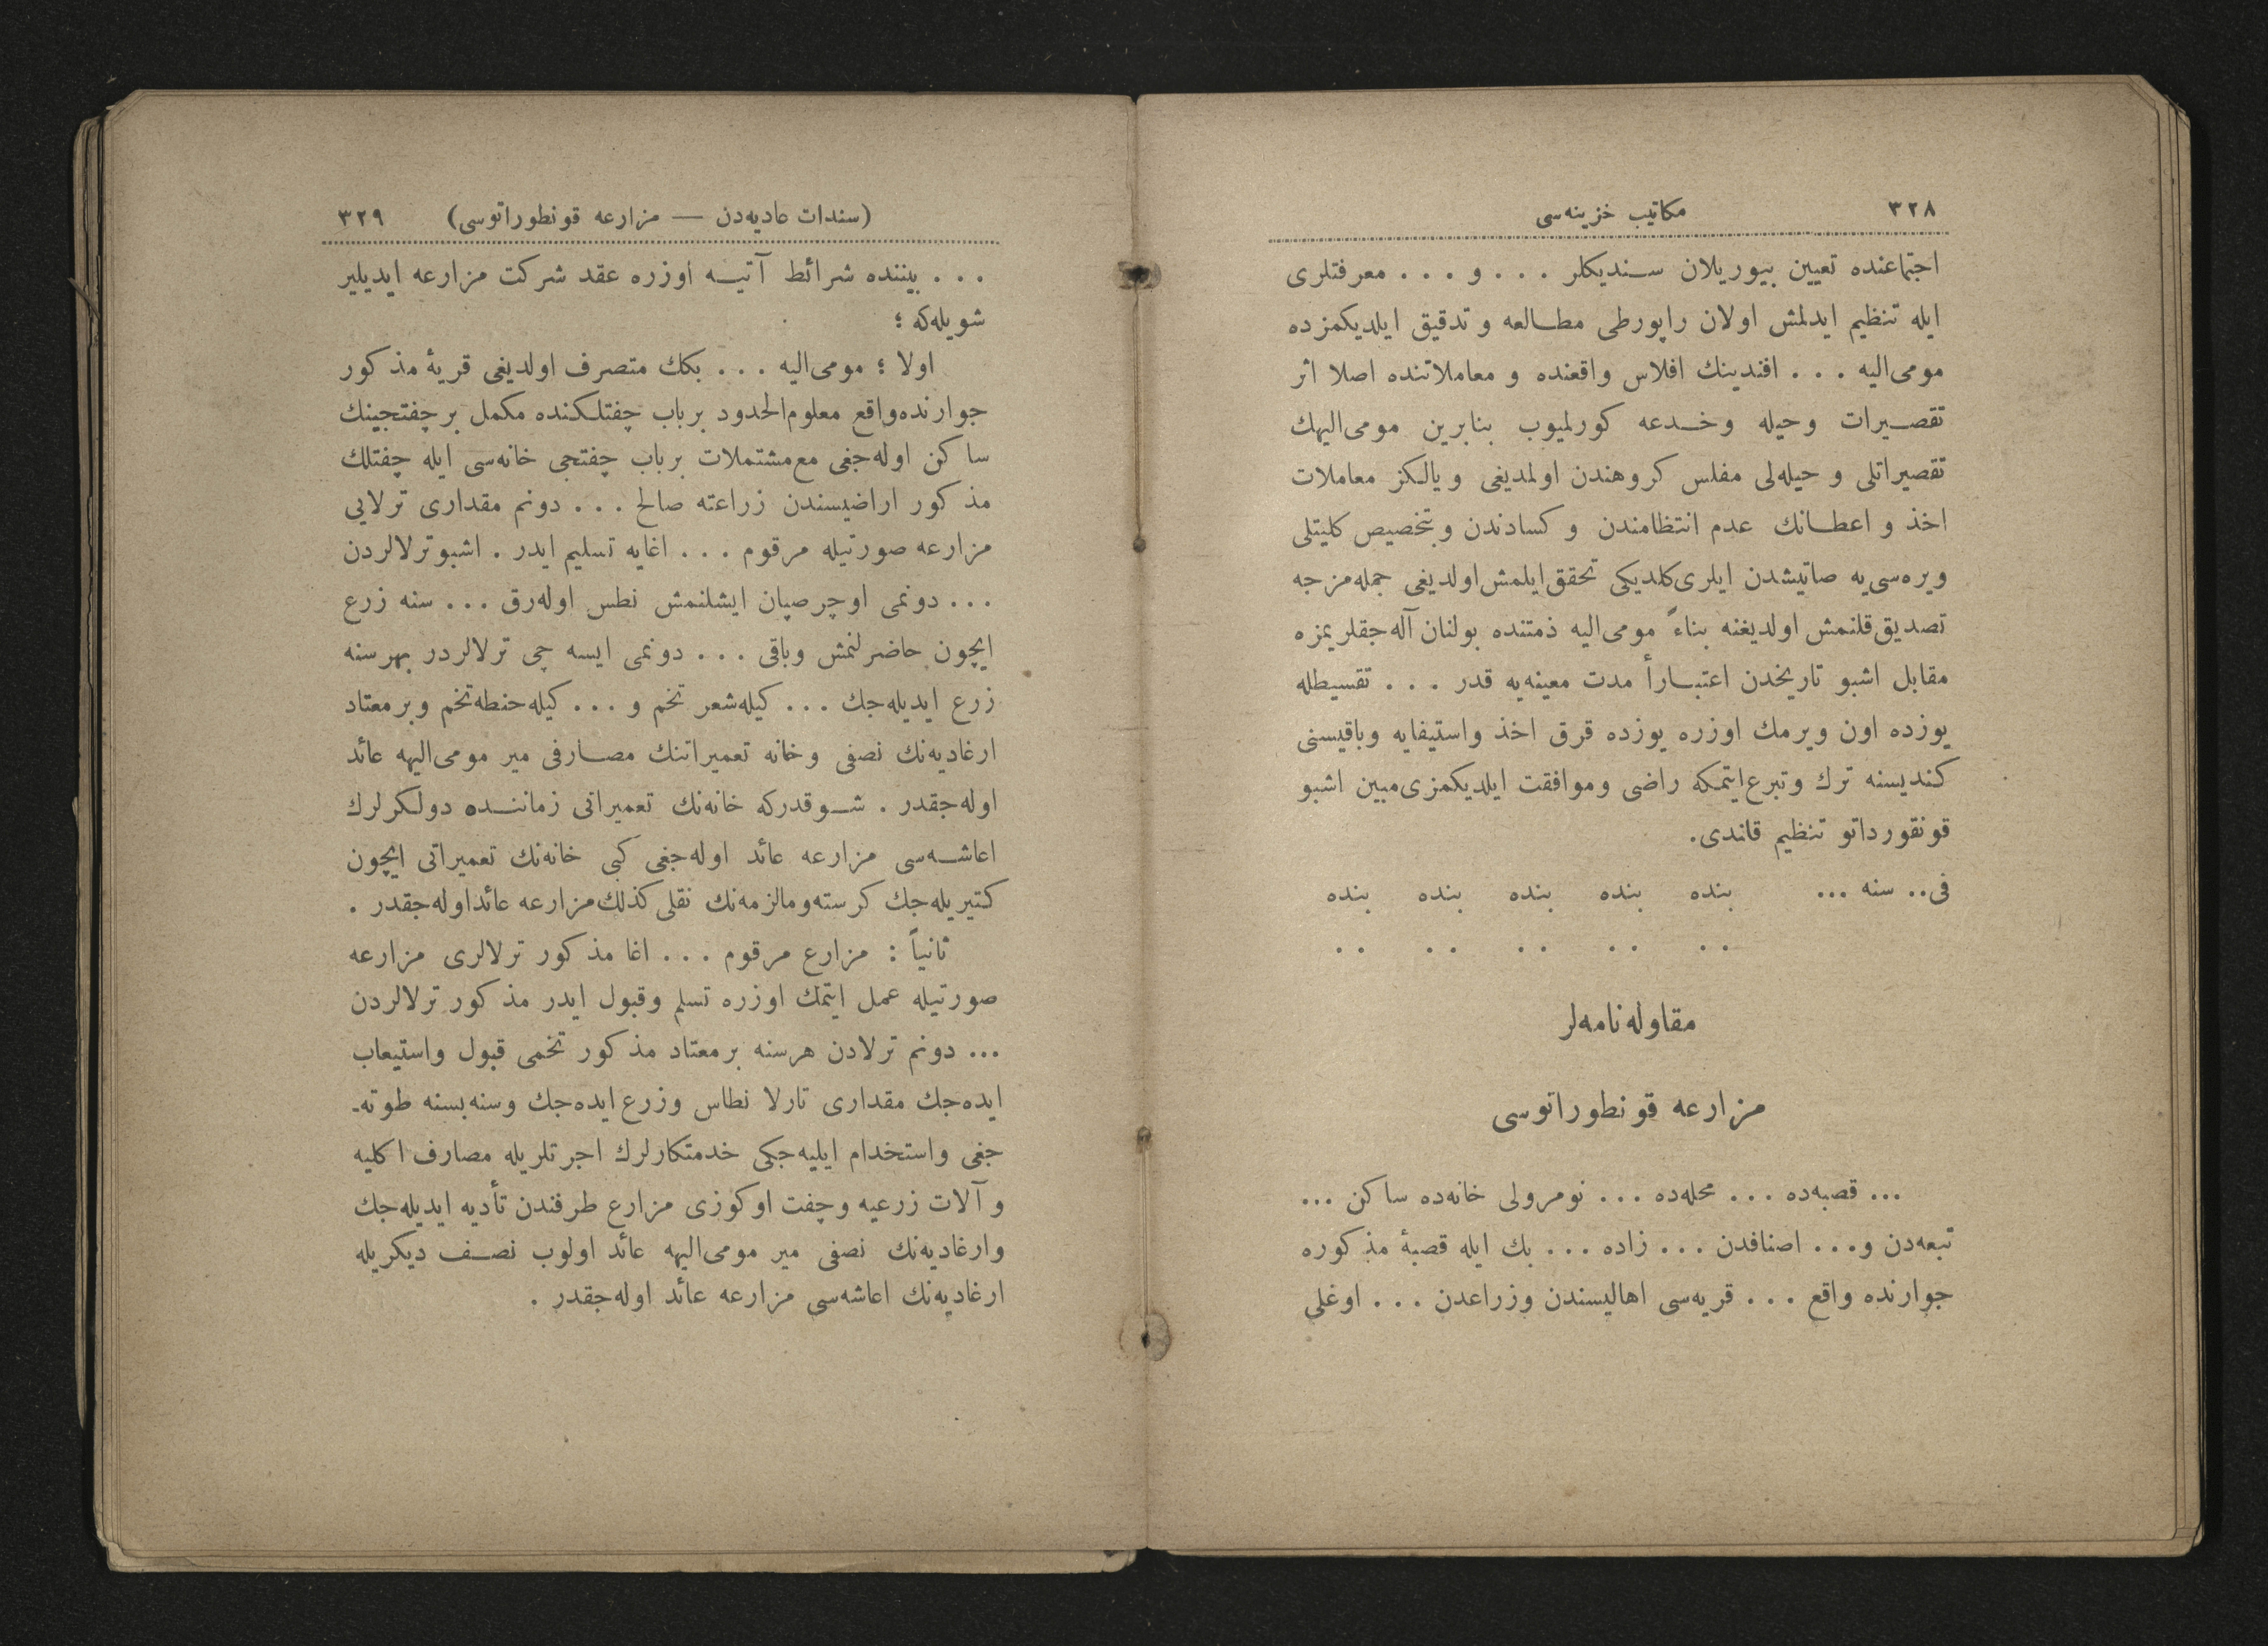 ٣٢٨ مكاتيب خزينه‌سی
اجتماعنده تعيين بيوريلان سنديكلر . . . و . . . معرفتلری
ايله تنظيم ايدلمش اولان راپورطی مطالعه و تدقيق ايلديكمزده
مومی‌اليه . . . افندينك افلاس واقعنده و معاملاتنده اصلا اثر
تقصيرات وحيله وخدعه كورلميوب بنابرين مومی‌اليهك
تقصيراتلی و حيله‌لی مفلس كروهندن اولمديغی و يالكز معاملات
اخذ و اعطانك عدم انتظامندن و كسادندن و بتخصيص كليتلی
ويره‌سی‌يه صاتيشدن ايلری‌كلديكی تحقق‌ايلمش‌اولديغی جمله‌مزجه
تصديق‌قلنمش اولديغنه بناءً مومی‌اليه ذمتنده بولنان آله‌جقلريمزه
مقابل اشبو تاريخدن اعتباراً مدت معينه‌يه قدر . . . تقسيطله
يوزده اون ويرمك اوزره يوزده قرق اخذ واستيفايه وباقيسنی
كنديسنه ترك وتبرع‌ايتمكه راضی وموافقت ايلديكمزی‌مبين اشبو
قونقورداتو تنظيم قلندی.
فی.. سنه ... بنده بنده بنده بنده بنده
. . . . . . . . . .
مقاوله‌نامه‌لر
مزارعه قونطوراتوسی
... قصبه‌ده . . . محله‌ده . . . نومرولی خانه‌ده ساكن ...
تبعه‌دن و. . . اصنافدن . . . زاده . . . بك ايله قصبهٔ مذكوره
جوارنده واقع . . . قريه‌سی اهاليسندن وزراعدن . . . اوغلی
(سندات عاديه‌دن — مزارعه قونطوراتوسی) ٣٢٩
. . . بيننده شرائط آتيه اوزره عقد شركت مزارعه ايديلير
شويله‌كه ؛
اولا ؛ مومی‌اليه . . . بكك متصرف اولديغی قريهٔ مذكور
جوارنده‌واقع معلوم‌الحدود برباب چفتلكنده مكمل برچفتجينك
ساكن اوله‌جغی مع‌مشتملات برباب چفتجی خانه‌سی ايله چفتلك
مذكور اراضيسندن زراعته صالح . . . دونم مقداری ترلايی
مزارعه صورتيله مرقوم . . . اغايه تسليم ايدر . اشبوترلالردن
. . . دونمی اوچرصپان ايشلنمش نطس اوله‌رق . . . سنه زرع
ايچون حاضرلنمش وباقی . . . دونمی ايسه چی ترلالردر بهرسنه
زرع ايديله‌جك . . . كيله‌شعر تخم و . . . كيله‌حنطه‌تخم وبرمعتاد
ارغاديه‌نك نصفی وخانه تعميراتنك مصارفی مير مومی‌اليهه عائد
اوله‌جقدر . شوقدركه خانه‌نك تعميراتی زماننده دولكرلرك
اعاشه‌سی مزارعه عائد اوله‌جغی كبی خانه‌نك تعميراتی ايچون
كتيريله‌جك كرسته‌ومالزمه‌نك نقلی كذلك‌مزارعه عائداوله‌جقدر .
ثانياً : مزارع مرقوم . . . اغا مذكور ترلالری مزارعه
صورتيله عمل ايتمك اوزره تسلم وقبول ايدر مذكور ترلالردن
... دونم ترلادن هرسنه برمعتاد مذكور تخمی قبول واستيعاب
ايده‌جك مقداری تارلا نطاس وزرع‌ايده‌جك وسنه‌بسنه طوته‌ـ
جغی واستخدام ايليه‌جكی خدمتكارلرك اجرتلريله مصارف اكليه
و آلات زرعيه وچفت اوكوزی مزارع طرفندن تأديه ايديله‌جك
وارغاديه‌نك نصفی مير مومی‌اليهه عائد اولوب نصف ديكريله
ارغاديه‌نك اعاشه‌سی مزارعه عائد اوله‌جقدر .